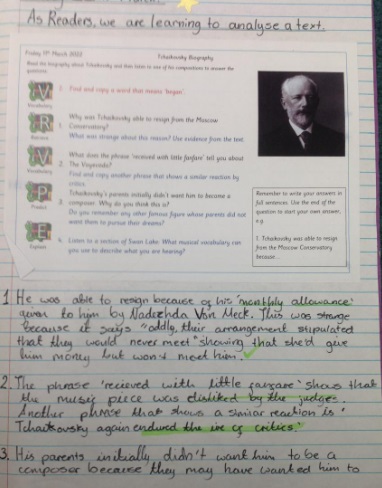 As Readers, we are learning to analyse a text.
Friday 11th March 2022
Tchaikovsky Biography
Read the biography about Tchaikovsky and then listen to one of his compositions to answer the
questions.
V
Vocabulary
1. Find and copy a word that means 'began'.
R
Retrieve
Why was Tchaikovsky able to resign from the Moscow
1. Conservatory?
What was strange about this reason? Use evidence from the text.
V
Vocabulary
What does the phrase 'received with little fanfare' tell you about
2. The Voyevoda?
Find and copy another phrase that shows a similar reaction by
critics.
P
Predict
Tchaikovsky's parents initially didn't want him to become a
3. composer. Why do you think this is?
Do you remember any other famous figure whose parents did not
want them to pursue their dreams?
E
Explain
4. Listen to a section of Swan Lake. What musical vocabulary can
you use to describe what you are hearing?
Remember to write your answers in
full sentences. Use the end of the
question to start your own answer,
e.g.
1. Tchaikovsky was able to resign
from the Moscow Conservatory
because...
1. He was able to resign because of his 'monthly allowance'
given to him by Nadezhda Von Meck. This was strange
because it says "oddly, their arrangement stipulated
that they would never meet" showing that she'd give
him money but won't meet him.
2. The phrase 'recieved with little fanfare' shows that
the music piece was disliked by the judges.
Another phrase that shows a similar reaction is '
Tchaikovsky again endured the ire of critics.'
3. His parents initially didn't want him to be a
composer because they may have wanted him to